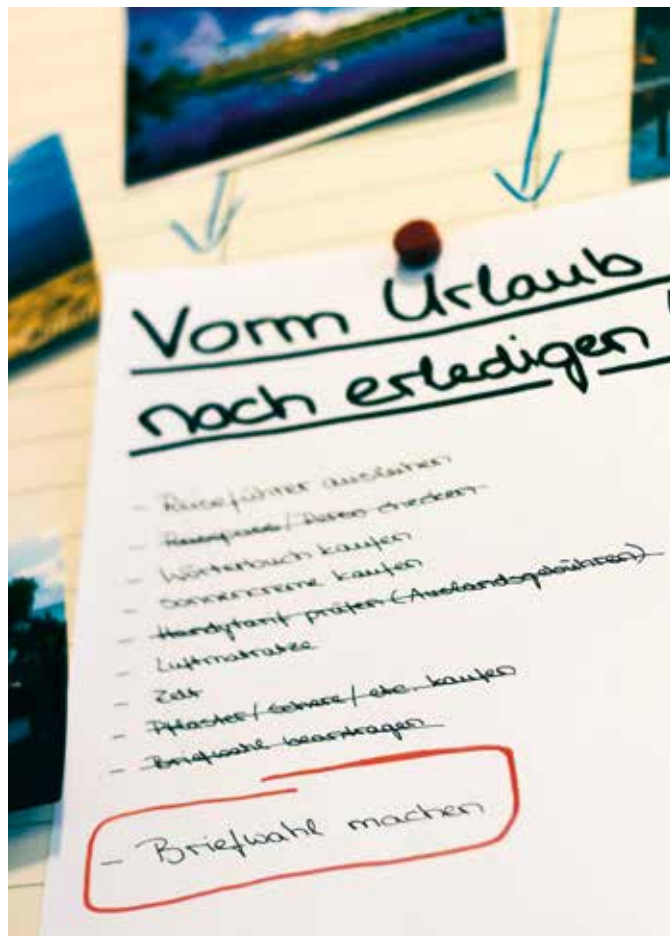 Vorm Urlaub
noch erledigen !
- Reiseführer ausleihen
- Reisepass / Daten checken
- Wörterbuch kaufen
- Sonnencreme kaufen
- Handytarif prüfen (Auslandsgebühren)
- Luftmatratze
- Zelt
- Pflaster / Schere / etc. kaufen
- Briefwahl beantragen
- Briefwahl machen